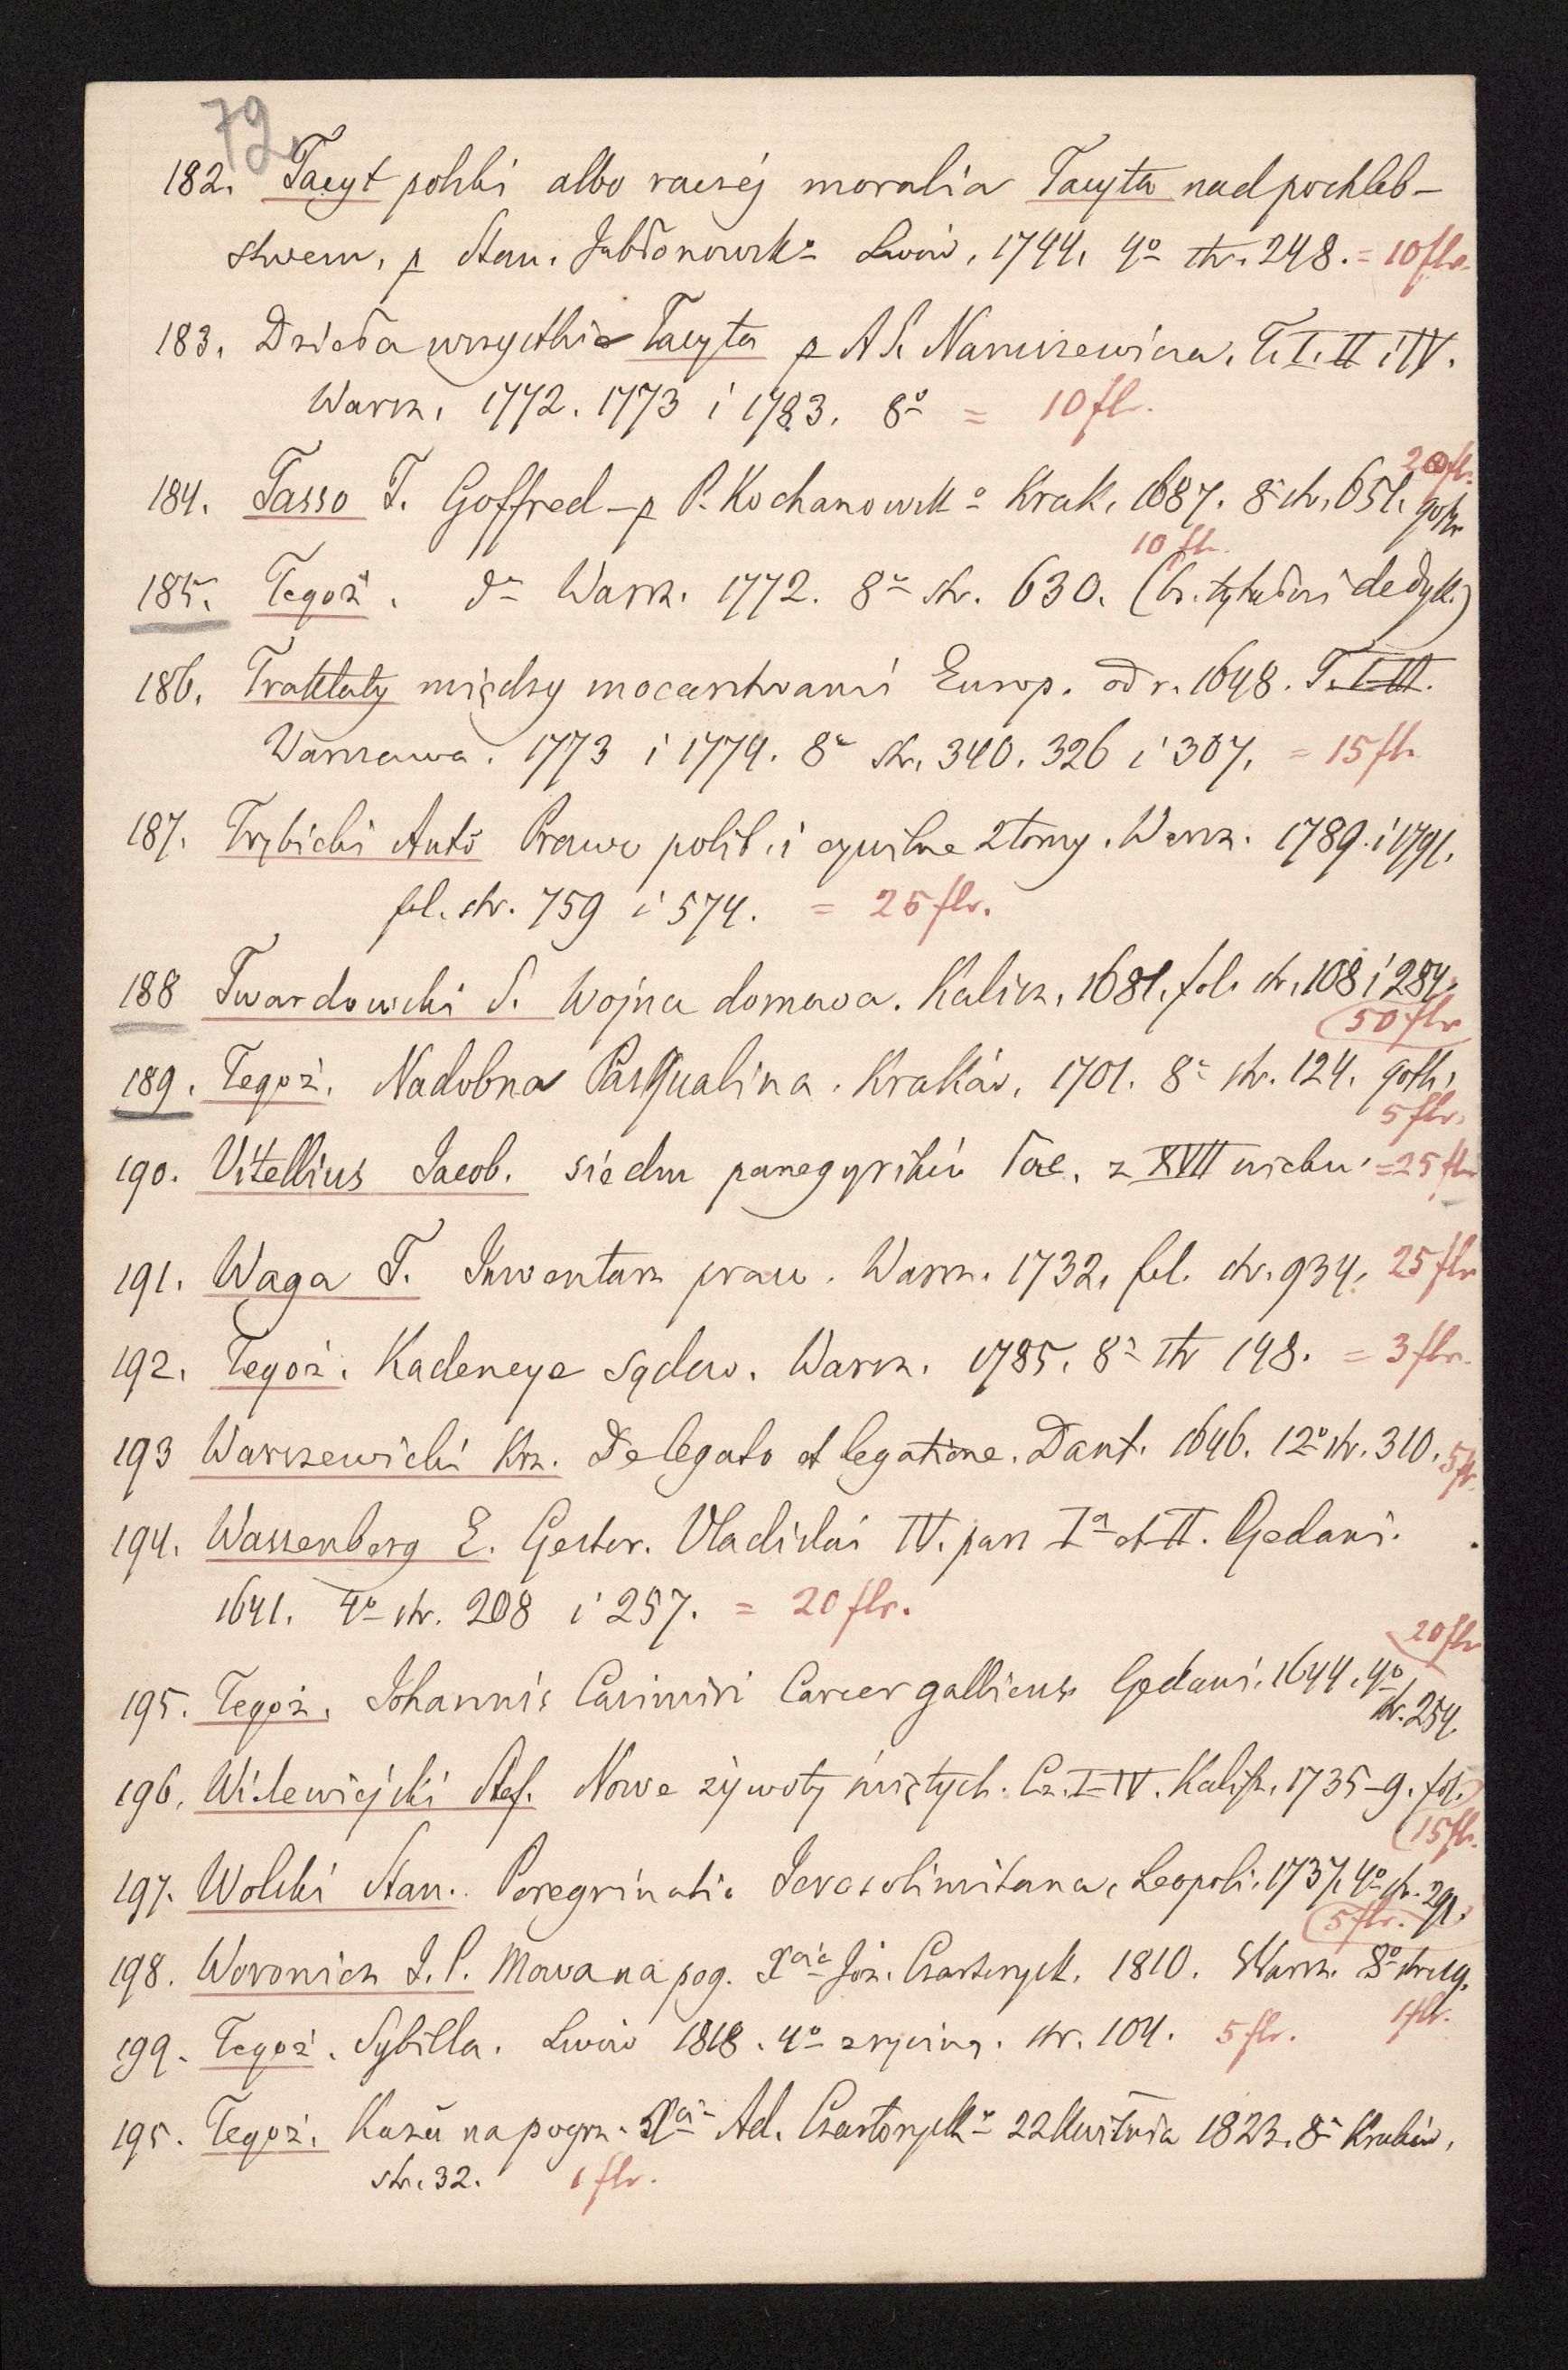 79.
182. Tacyt polski albo raczéj moralia Tacyta nad pochleb-
stwem, p Stan. Jabłonowsko Lwów, 1744. 4o str. 248. = 10 flr.
183. Dzieła wszystkie Tacyta p A S. Naruszewicza. T. I. II i IV.
Warsz. 1772. 1773 i 1783. 8o = 10 fl.
184. Tasso T. Goffred - p P. Kochanowsko Krak. 1687. 8o str. 651. gotk 20 fl.
10 fl.
185. Tegoż. do Warsz. 1772. 8o str. 630. (br. tytułu i dedyk.)
186. Traktaty między mocarstwami Europ. od r. 1648. T. I-III.
Warszawa. 1773 i 1774. 8o str. 340. 326 i 307. = 15 fl.
187. Trębicki Antō Prawo polit. i cywilne 2 tomy. Warsz. 1789. i 1791.
fol. str. 759 i 574. = 25 flr.
188 Twardowski S. Wojna domowa. Kalisz. 1681. fol. str. 108 i 284.
50 flr
189. Tegoż. Nadobna Pasqualina. Kraków, 1701. 8o str. 124. goth.
5 flr.
190. Vitellius Jacob. siedm panegyrików łac. z XVII wieku. = 25 flr
191. Waga T. Inwentarz praw. Warsz. 1732. fol. str. 934. 25 flr
192. Tegoż. Kadencye sądow. Warsz. 1785. 8o str 198. = 3 flr.
193 Warszewicki Krz. De legato et legatione. Dant. 1646. 12o str. 310. 5 fl.
194. Wassenberg E. Gestor. Vladislai IV. pars Ia et II. Gedani.
1641. 4o str. 208 i 257. = 20 flr.
20 flr
195. Tegoż. Johannis Casimiri Carcer gallicus Gedani. 1644. 4o
str. 254.
196. Wielewiejski Stef. Nowe żywoty świętych. Cz. I-IV. Kalisz. 1735-9. fol.
15 fl.
197. Wolski Stan. Peregrinatio Jerosolimitana, Leopoli. 1737. 4o str. 291.
5 flr.
198. Woronicz J. P. Mowa na pog. Xcia Józ. Czartorysk. 1810. Warsz. 8o str.
1 flr.
199. Tegoż. Sybilla. Lwów 1818. 4o z ryciną. str. 104. 5 flr.
195. Tegoż. Kazā na pogrz. Xcia Ad. Czartorysko 22 Kwietnia 1823. 8o Kraków,
str. 32. 1 flr.